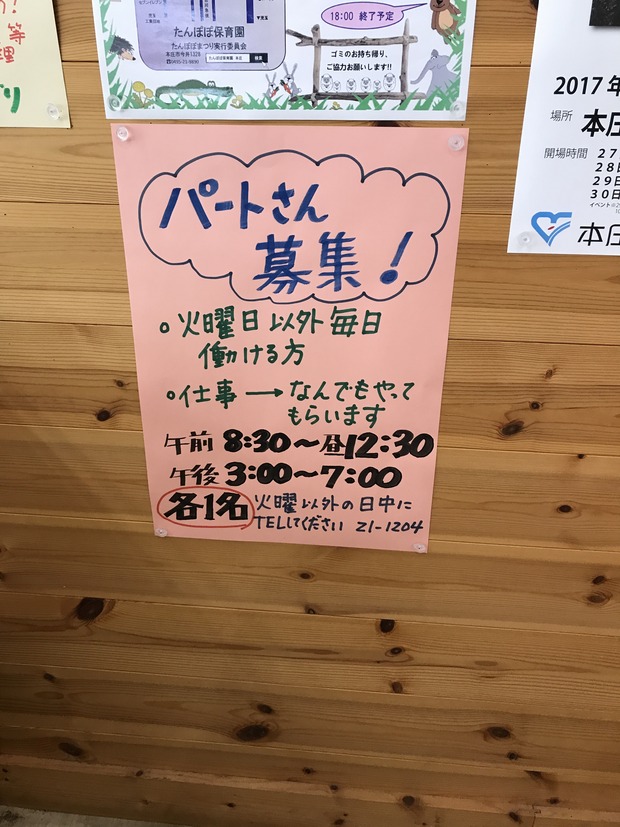 !
等
理
り
たんぽぽ保育園
たんぽぽまつり実行委員会
本庄市今井1328
たんぽぽ保育園 本庄
検索
18:00 終了予定
ゴミのお持ち帰り、
ご協力お願いします!!
パートさん
募集!
○火曜日以外毎日
働ける方
○仕事→なんでもやって
もらいます
午前 8:30〜昼12:30
午後 3:00〜7:00
各1名 火曜以外の日中に
TELしてください 21-1204
2017年
場所 本庄
開場時間 27
28日
29日
30日
本庄